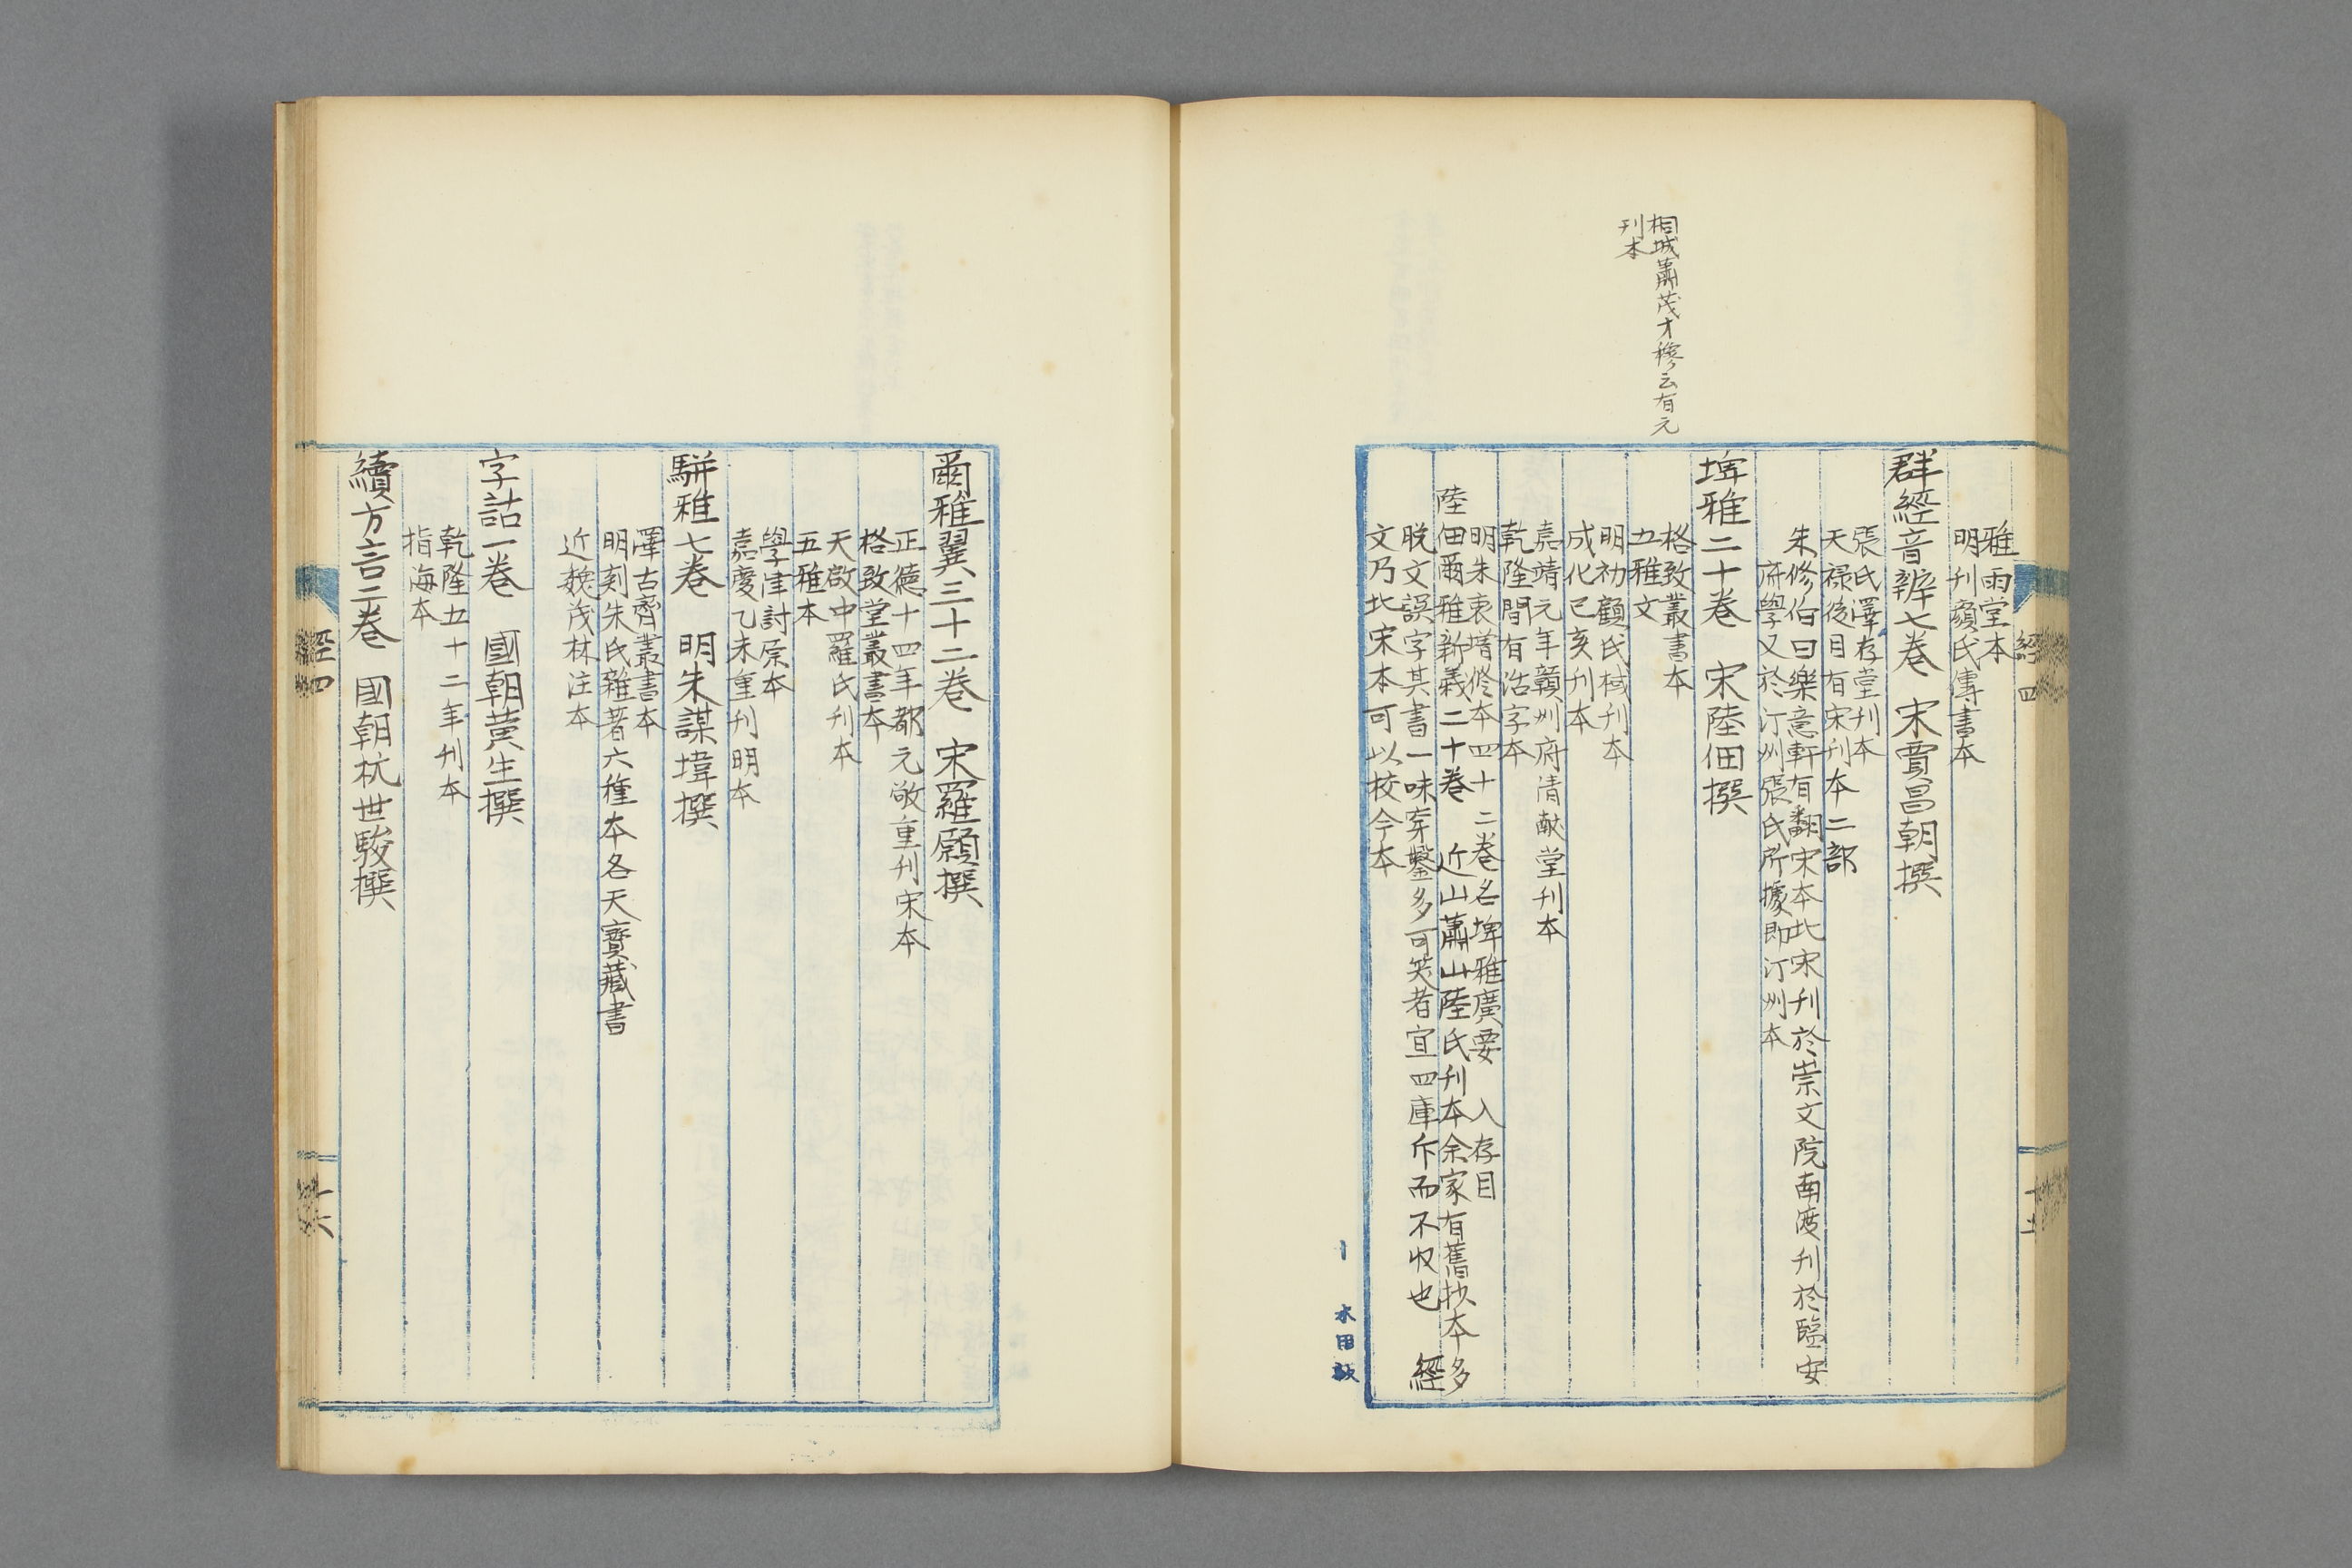 相城蕭茂才穆云有元
刊本
雅雨堂本
明刊顧氏傳書本
群經音辨七卷 宋賈昌朝撰
張氏澤存堂刊本
天禄後目有宋刊本二部
朱修伯曰樂意軒有翻宋本此宋刊於崇文院南渡刊於臨安
府學又於汀州張氏所據即汀州本
埤雅二十卷 宋陸佃撰
格致叢書本
五雅文
明初顧氏棫刊本
成化己亥刊本
嘉靖元年贛州府清献堂刊本
乾隆間有活字本
明朱衷增修本四十二卷名埤雅廣要 入存目
陸佃爾雅新義二十卷 近山蕭山陸氏刊本余家有舊抄本多
脱文誤字其書一味穿鑿多可笑者宜四庫斥而不收也 經
文乃北宋本可以校今本
經四
木田敬
爾雅翼三十二卷 宋羅願撰
正德十四年都元敬重刊宋本
格致堂叢書本
天啟中羅氏刊本
五雅本
學津討原本
嘉慶乙未重刊明本
駢雅七卷 明朱謀㙔撰
澤古齋叢書本
明刻朱氏雜著六種本各天寶藏書
近魏茂林注本
字詁一卷 國朝黄生撰
乾隆五十二年刊本
指海本
續方言二卷 國朝杭世駿撰
經四
十六